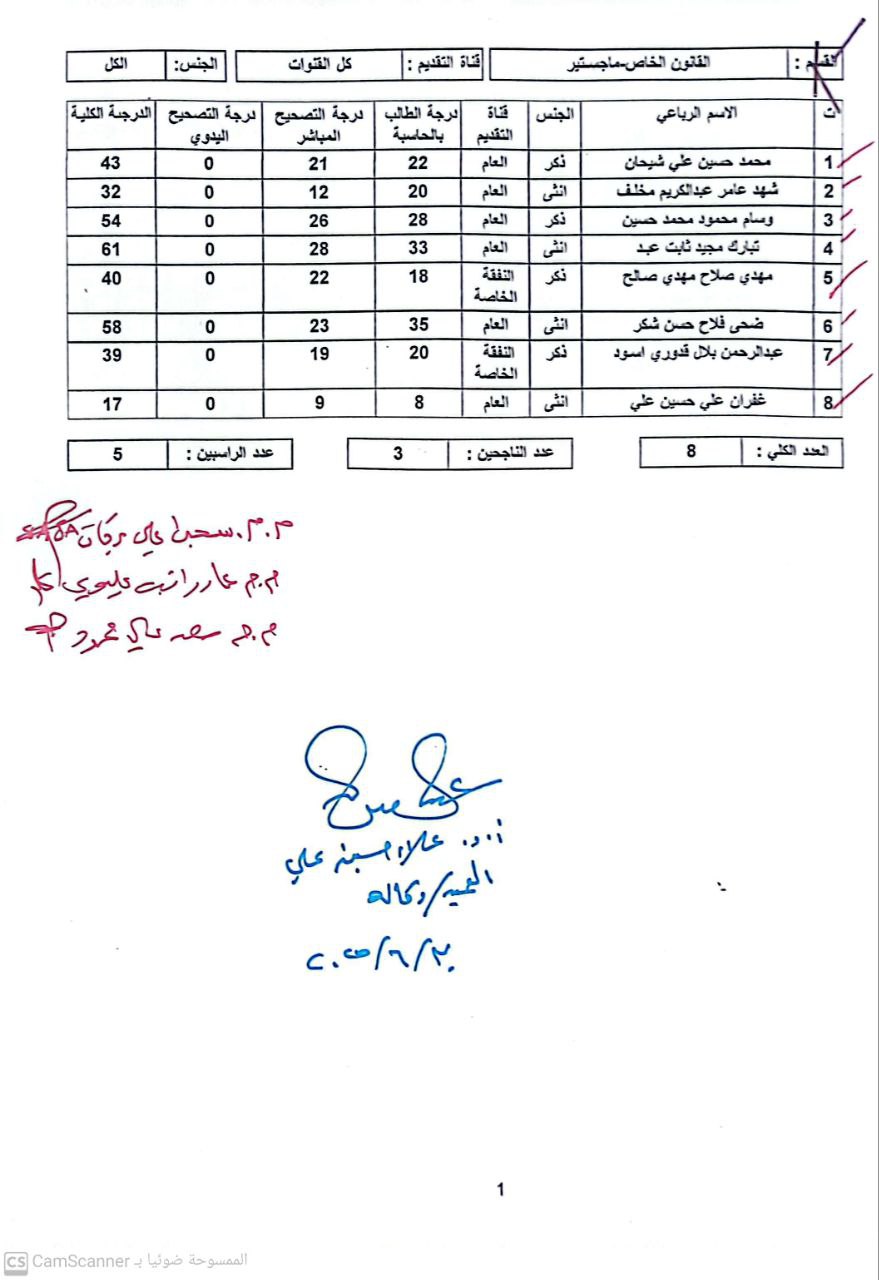 القسم : القانون الخاص-ماجستير قناة التقديم : كل القنوات الجنس: الكل
ت الاسم الرباعي الجنس قناة التقديم درجة الطالب بالحاسبة درجة التصحيح المباشر درجة التصحيح اليدوي الدرجة الكلية
1 محمد حسين علي شيحان ذكر العام 22 21 0 43
2 شهد عامر عبدالكريم مخلف انثى العام 20 12 0 32
3 وسام محمود محمد حسين ذكر العام 28 26 0 54
4 تبارك مجيد ثابت عبد انثى العام 33 28 0 61
5 مهدي صلاح مهدي صالح ذكر النفقة الخاصة 18 22 0 40
6 ضحى فلاح حسن شكر انثى العام 35 23 0 58
7 عبدالرحمن بلال قدوري اسود ذكر النفقة الخاصة 20 19 0 39
8 غفران علي حسين علي انثى العام 8 9 0 17
العدد الكلي : 8 عدد الناجحين : 3 عدد الراسبين : 5
م.م. علي
م.م
م.م سعد علي محمود
أ.د. علاء حسين علي
العميد/وكالة
٢٠٢٥/٦/٣٠
1
CS CamScanner الممسوحة ضوئيا بـ